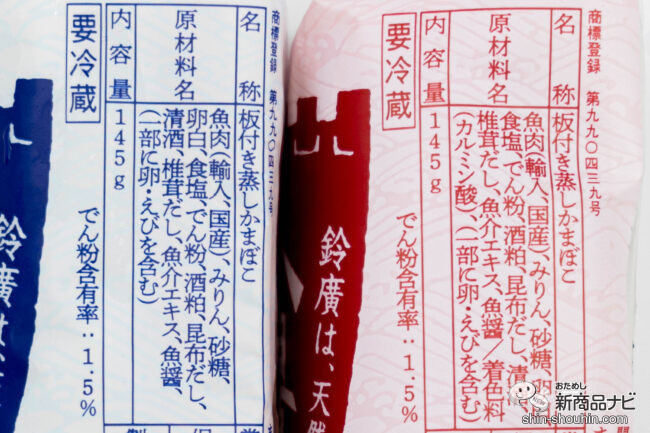 商標登録 第九九〇四三九号
名称 板付き蒸しかまぼこ
原材料名 魚肉(輸入、国産)、みりん、砂糖、
卵白、食塩、でん粉、酒粕、昆布だし、
清酒、椎茸だし、魚介エキス、魚醤、
(一部に卵・えびを含む)
内容量 145g
要冷蔵
でん粉含有率：1.5%
鈴廣は、天
商標登録 第九九〇四三九号
名称 板付き蒸しかまぼこ
原材料名 魚肉(輸入、国産)、みりん、砂糖、卵
食塩、でん粉、酒粕、昆布だし、清
椎茸だし、魚介エキス、魚醤／着色料
(カルミン酸)、(一部に卵・えびを含む)
内容量 145g
要冷蔵
でん粉含有率：1.5%
鈴廣は、天然
おためし
新商品ナビ
shin-shouhin.com